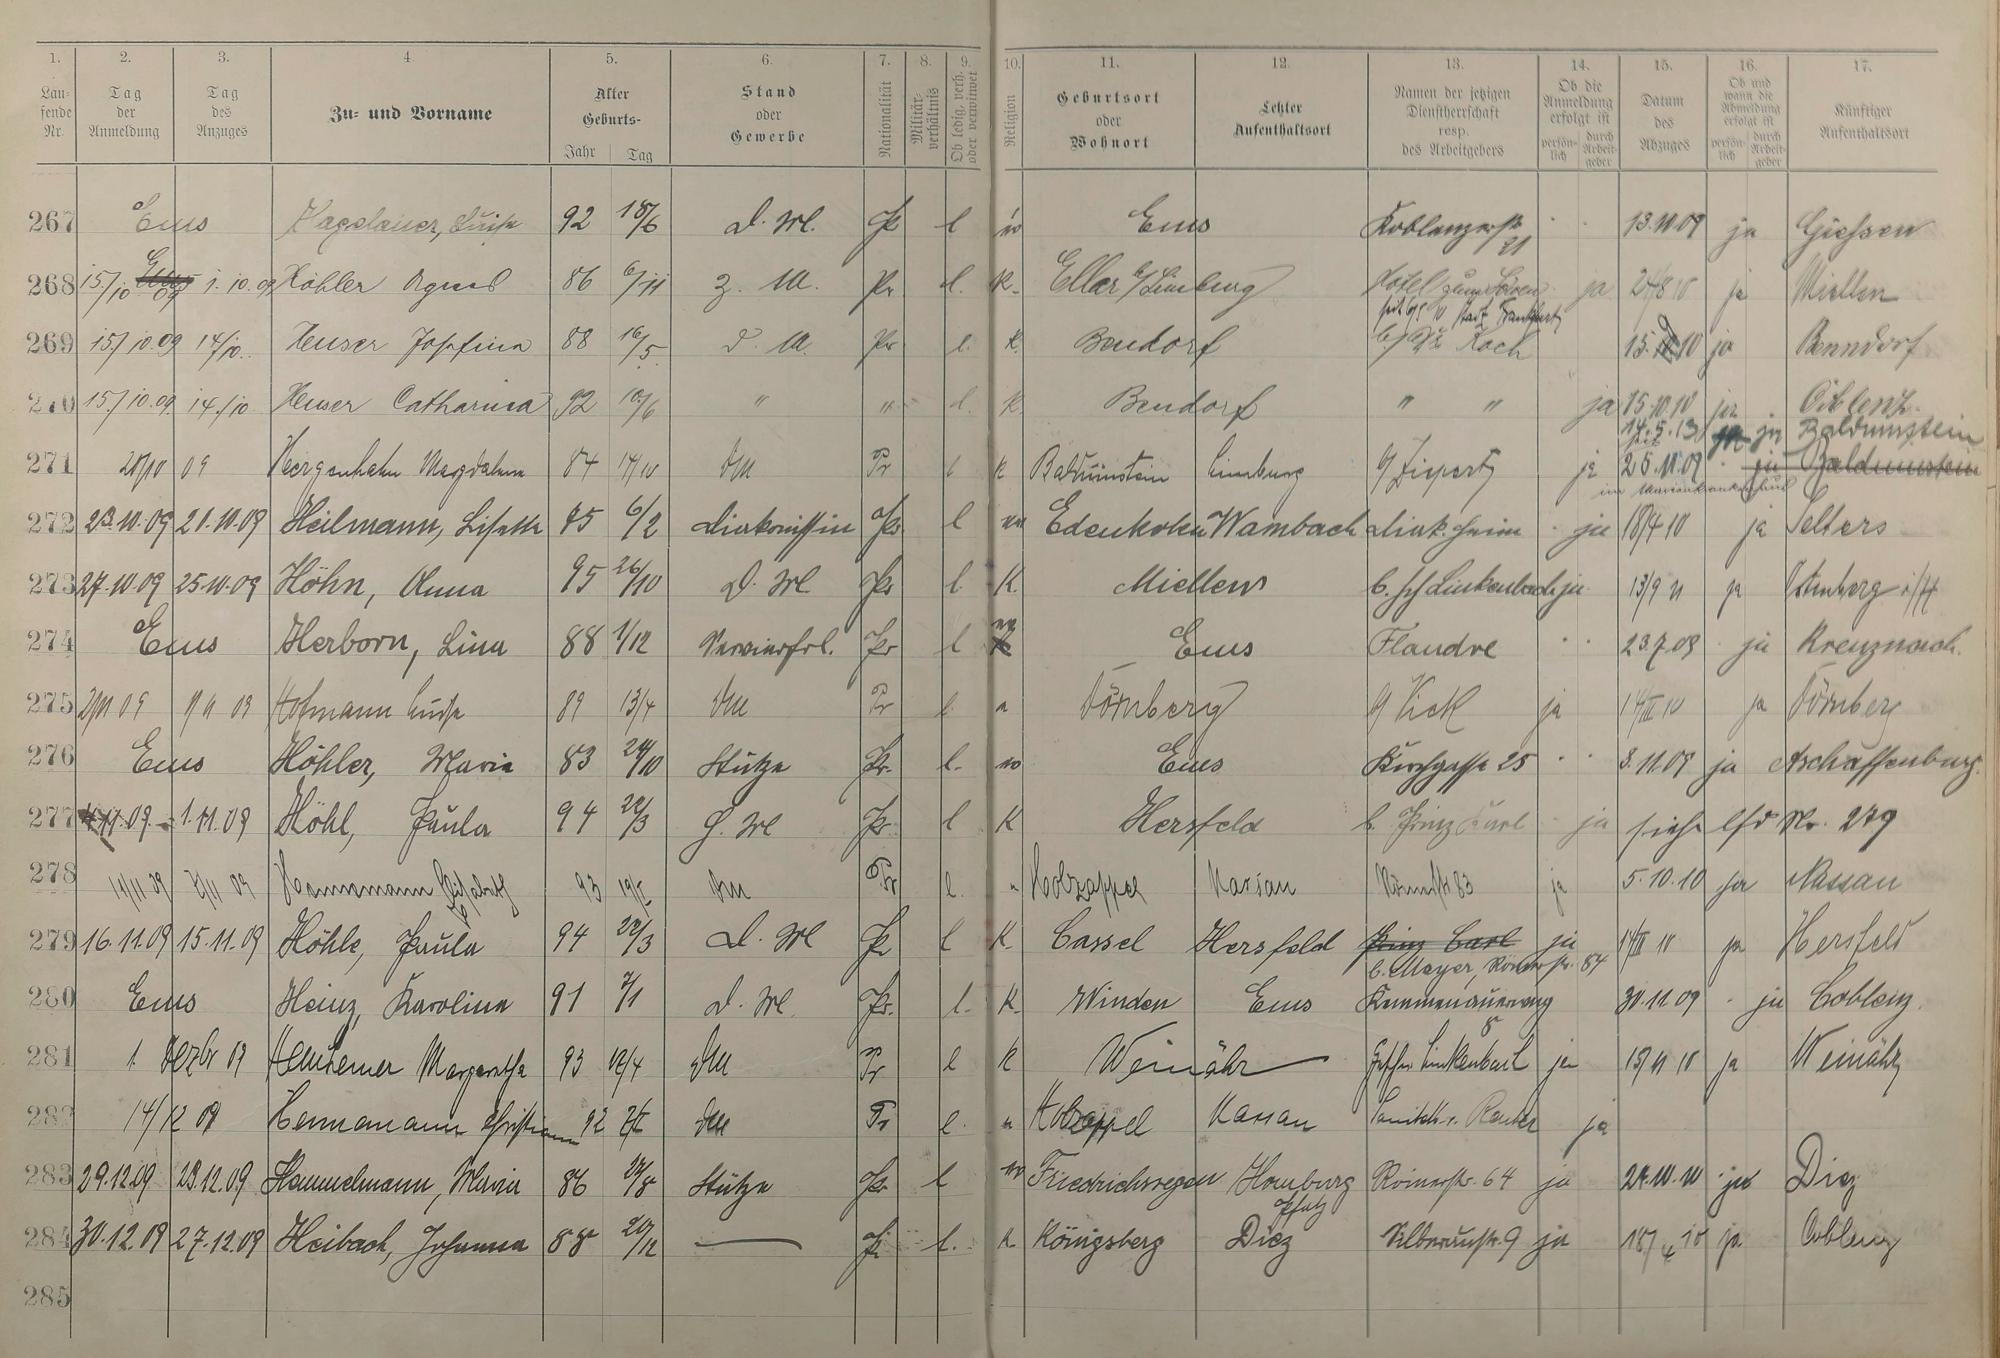 1. 2. 3. 4 5. 6. 7. 8. 9. 10. 11. 12. 13. 14. 15. 16. 17.
Laufende Nr. Tag der Anmeldung Tag des Anzuges Zu- und Vorname Alter Geburts- Jahr Tag Stand oder Gewerbe Nationalität Militärverhältnis Ob ledig, verh. oder verwitwet Religion Geburtsort oder Wohnort Letzter Aufenthaltsort Namen der jetzigen Dienstherrschaft resp. des Arbeitgebers Ob die Anmeldung erfolgt ist persönlich durch Arbeitgeber Datum des Abzuges Ob und wann die Abmeldung erfolgt ist persönlich durch Arbeitgeber Künftiger Aufenthaltsort
267 Ems 92 18/6 D. M. Pr l Ems Koblenzerstr. 21 13.10.09 ja Giessen
268 15./10 09 1.10.09 Köhler Agnes 86 6/11 Z. M. Pr l. K. Eller b/Limburg Hotel zum Löwen ja 24/8 10 ja Miellen
269 15./10.09 14/10. Heuser Josefina 88 16/5 D. M. Pr l. K. Bendorf Koch 15. 10 ja Benndorf
270 15./10.09 14./10 Heuser Catharina 92 10/6 " " l. K. Bendorf " " ja 15.10.10 ja Coblenz.
14.5.13 ja Balduinstein
271 20/10 09 Hergenhahn Magdalena 84 14/10 DM Pr l K Balduinstein Limburg ja 25.10.09 ja Balduinstein
272 23.10.09 21.10.09 Heilmann, Lisette 85 6/2 Diakonissin Pr. l Edenkoben Wambach Diak. heim ja 18/4 10 ja Selters
273 27.10.09 25.10.09 Höhn, Anna 95 26/10 D. M. Pr l. K. Miellen b. Linkenbach ja 13/9 11 ja
274 Ems Herborn, Lina 88 1/12 Servierfrl. Pr l Ems Flandre 23.7.09 ja Kreuznach.
275 2/11 09 1/11 09 Hofmann Luise 89 13/4 DM Pr l. Dörnberg ja 1/III 10 ja Dörnberg
276 Ems Höhler, Maria 83 24/10 Stütze Pr. l. Ems Kirchgasse 25 3.11.09 ja Aschaffenburg.
277 1.11.09 Höhl, Paula 94 22/3 H. M Pr. l K Hersfeld b. Prinz Karl ja siehe lfd Nr. 279
278 11/11 09 8/11 09 Hannemann Elisabeth 93 DM Pr l. Holzappel Nassau Römerstr. 83 ja 5.10.10 ja Nassau
279 16.11.09 15.11.09 Höhle, Paula 94 22/3 D. M Pr l K. Cassel Hersfeld Prinz Carl ja 1/III 10 ja Hersfeld
b. Meyer, Römerstr. 84
280 Ems Heinz, Karolina 91 7/1 D. M. Pr. l. K. Winden Ems Kemmenauerweg 8 30.11.09 ja Coblenz.
281 1. Dezbr 09 Margaretha 93 12/4 DM Pr l K Weinähr Linkenbach ja 15/11 10 ja Weinähr
282 14/12 09 Hannemann Christiane 92 DM Pr l. Holzappel Nassau ja
283 29.12.09 23.12.09 Hammelmann, Maria 86 27/8 Stütze Pr l Friedrichssegen Homburg Pfalz Römerstr. 64 ja 24.10.10 ja Diez
284 30.12.09 27.12.09 Heibach, Johanna 88 20/12 Pr l. K. Königsberg Diez 9 ja 18/4 10 ja Coblenz
285